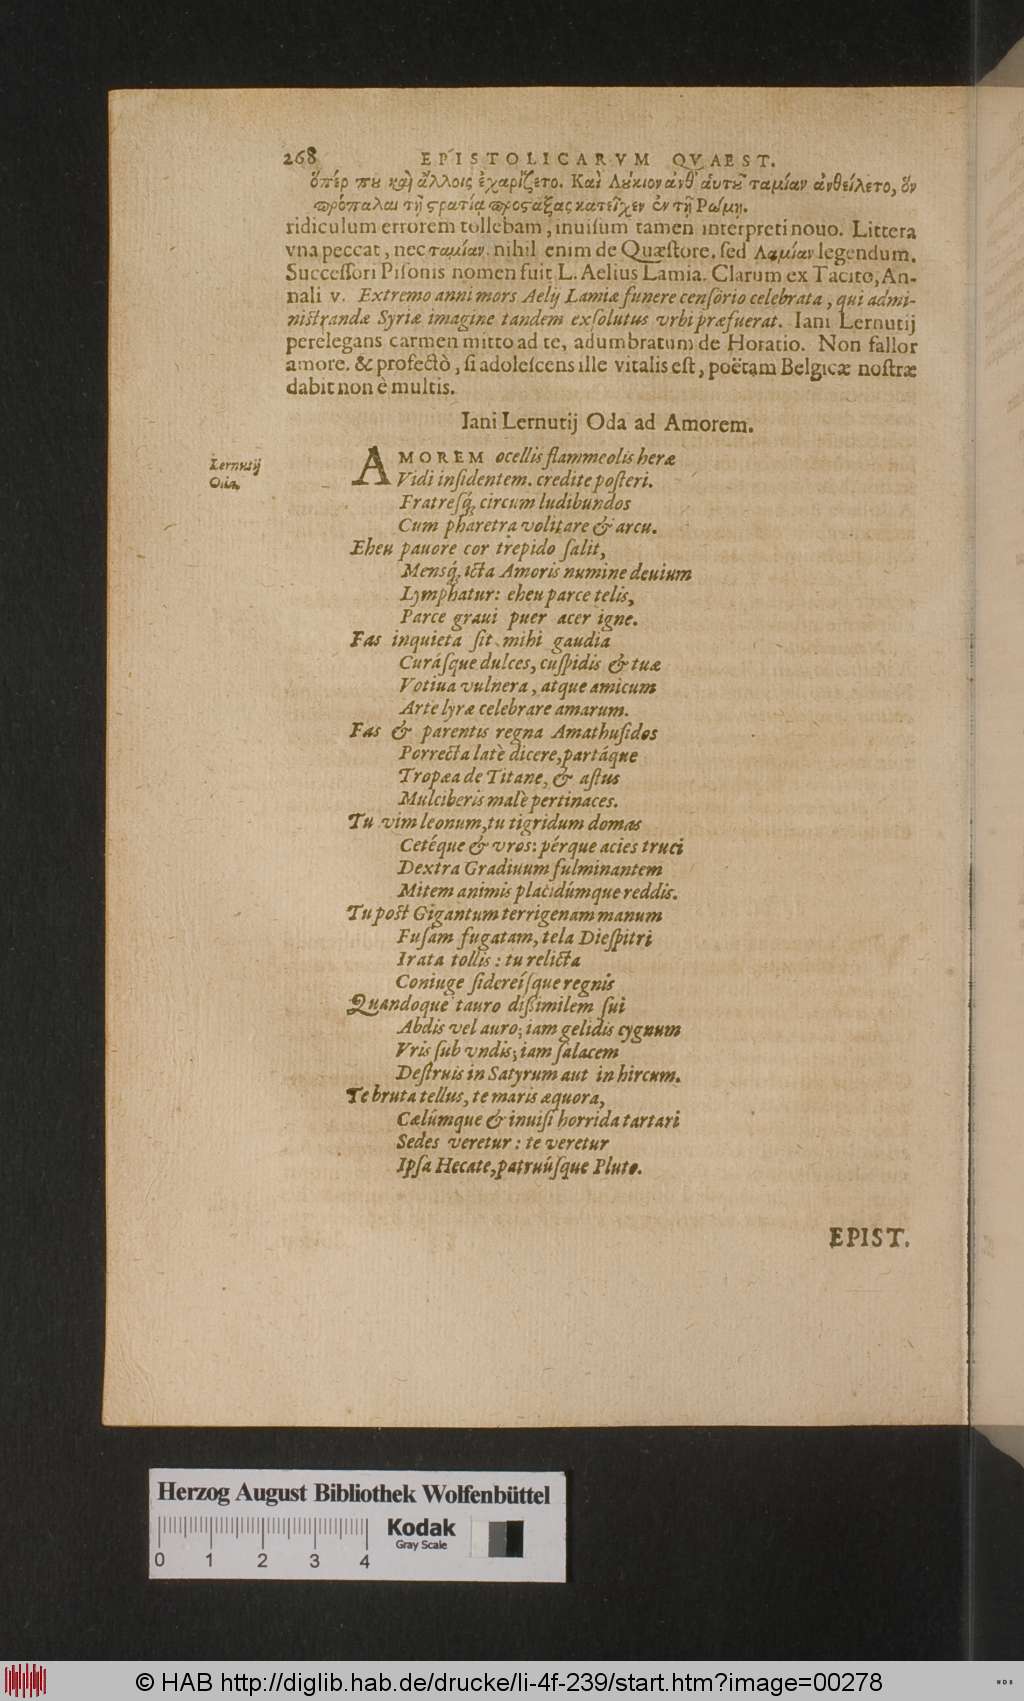 268 EPISTOLICARVM QVAEST.
ὅπέρ που καὶ ἄλλοις ἐχαρίζετο. Καὶ Λούκιον ἀνθ' ἁυτοῦ ταμίαν ἀνθείλετο, ὅν
πρόπαλαι τῇ στρατίᾳ προςάξας κατεῖχεν ἐν τῇ Ρώμῃ.
ridiculum errorem tollebam, inuisum tamen interpreti nouo. Littera
vna peccat, nec ταμίαν. nihil enim de Quæstore. sed Λαμίαν legendum.
Successori Pisonis nomen fuit L. Aelius Lamia. Clarum ex Tacito, An-
nali v. Extremo anni mors Aelij Lamiæ funere censorio celebrata, qui admi-
nistrandæ Syriæ imagine tandem exsolutus vrbi præfuerat. Iani Lernutij
perelegans carmen mitto ad te, adumbratum de Horatio. Non fallor
amore. & profectò, si adolescens ille vitalis est, poëtam Belgicæ nostræ
dabit non è multis.
Iani Lernutij Oda ad Amorem.
Lernutij
Oda.
AMOREM ocellis flammeolis heræ
Vidi insidentem. credite posteri.
Fratresq́, circum ludibundos
Cum pharetra volitare & arcu.
Eheu pauore cor trepido salit,
Mensq́, icta Amoris numine deuium
Lymphatur: eheu parce telis,
Parce graui puer acer igne.
Fas inquieta sit mihi gaudia
Curásque dulces, cuspidis & tuæ
Votiua vulnera, atque amicum
Arte lyræ celebrare amarum.
Fas & parentis regna Amathusidos
Porrecta latè dicere, partáque
Tropæa de Titane, & astus
Mulciberis malè pertinaces.
Tu vim leonum, tu tigridum domas
Cetéque & vros: pérque acies truci
Dextra Gradiuum fulminantem
Mitem animis placidúmque reddis.
Tu post Gigantum terrigenam manum
Fusam fugatam, tela Diespitri
Irata tollis: tu relicta
Coniuge sidereísque regnis
Quandoque tauro dissimilem sui
Abdis vel auro; iam gelidis cygnum
Vris sub vndis; iam salacem
Destruis in Satyrum aut in hircum.
Te bruta tellus, te maris æquora,
Cælúmque & inuisi horrida tartari
Sedes veretur: te veretur
Ipsa Hecate, patruúsque Pluto.
EPIST.
Herzog August Bibliothek Wolfenbüttel
Kodak
Gray Scale
0 1 2 3 4
© HAB http://diglib.hab.de/drucke/li-4f-239/start.htm?image=00278